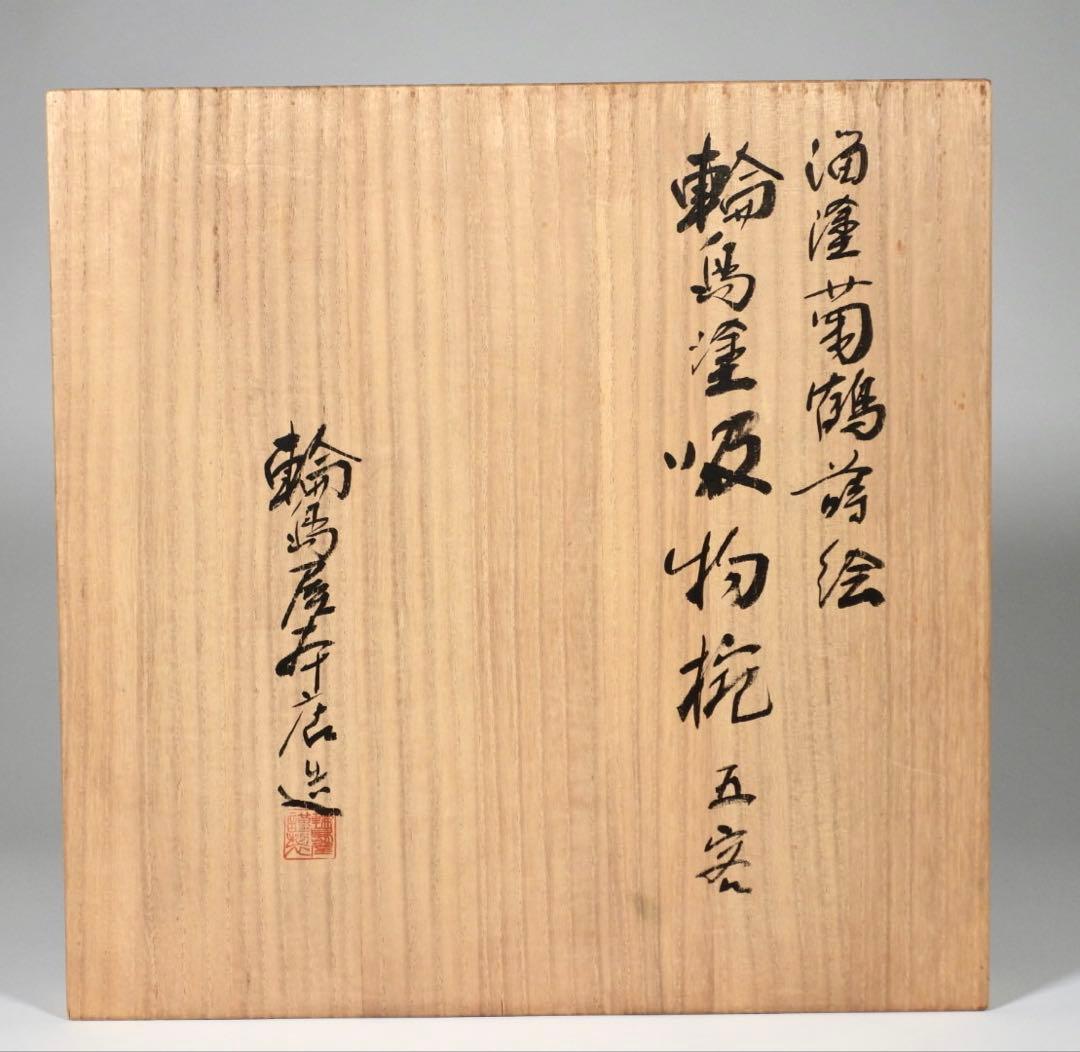 溜塗菊鶴蒔絵
輪島塗吸物椀 五客
輪島屋本店造